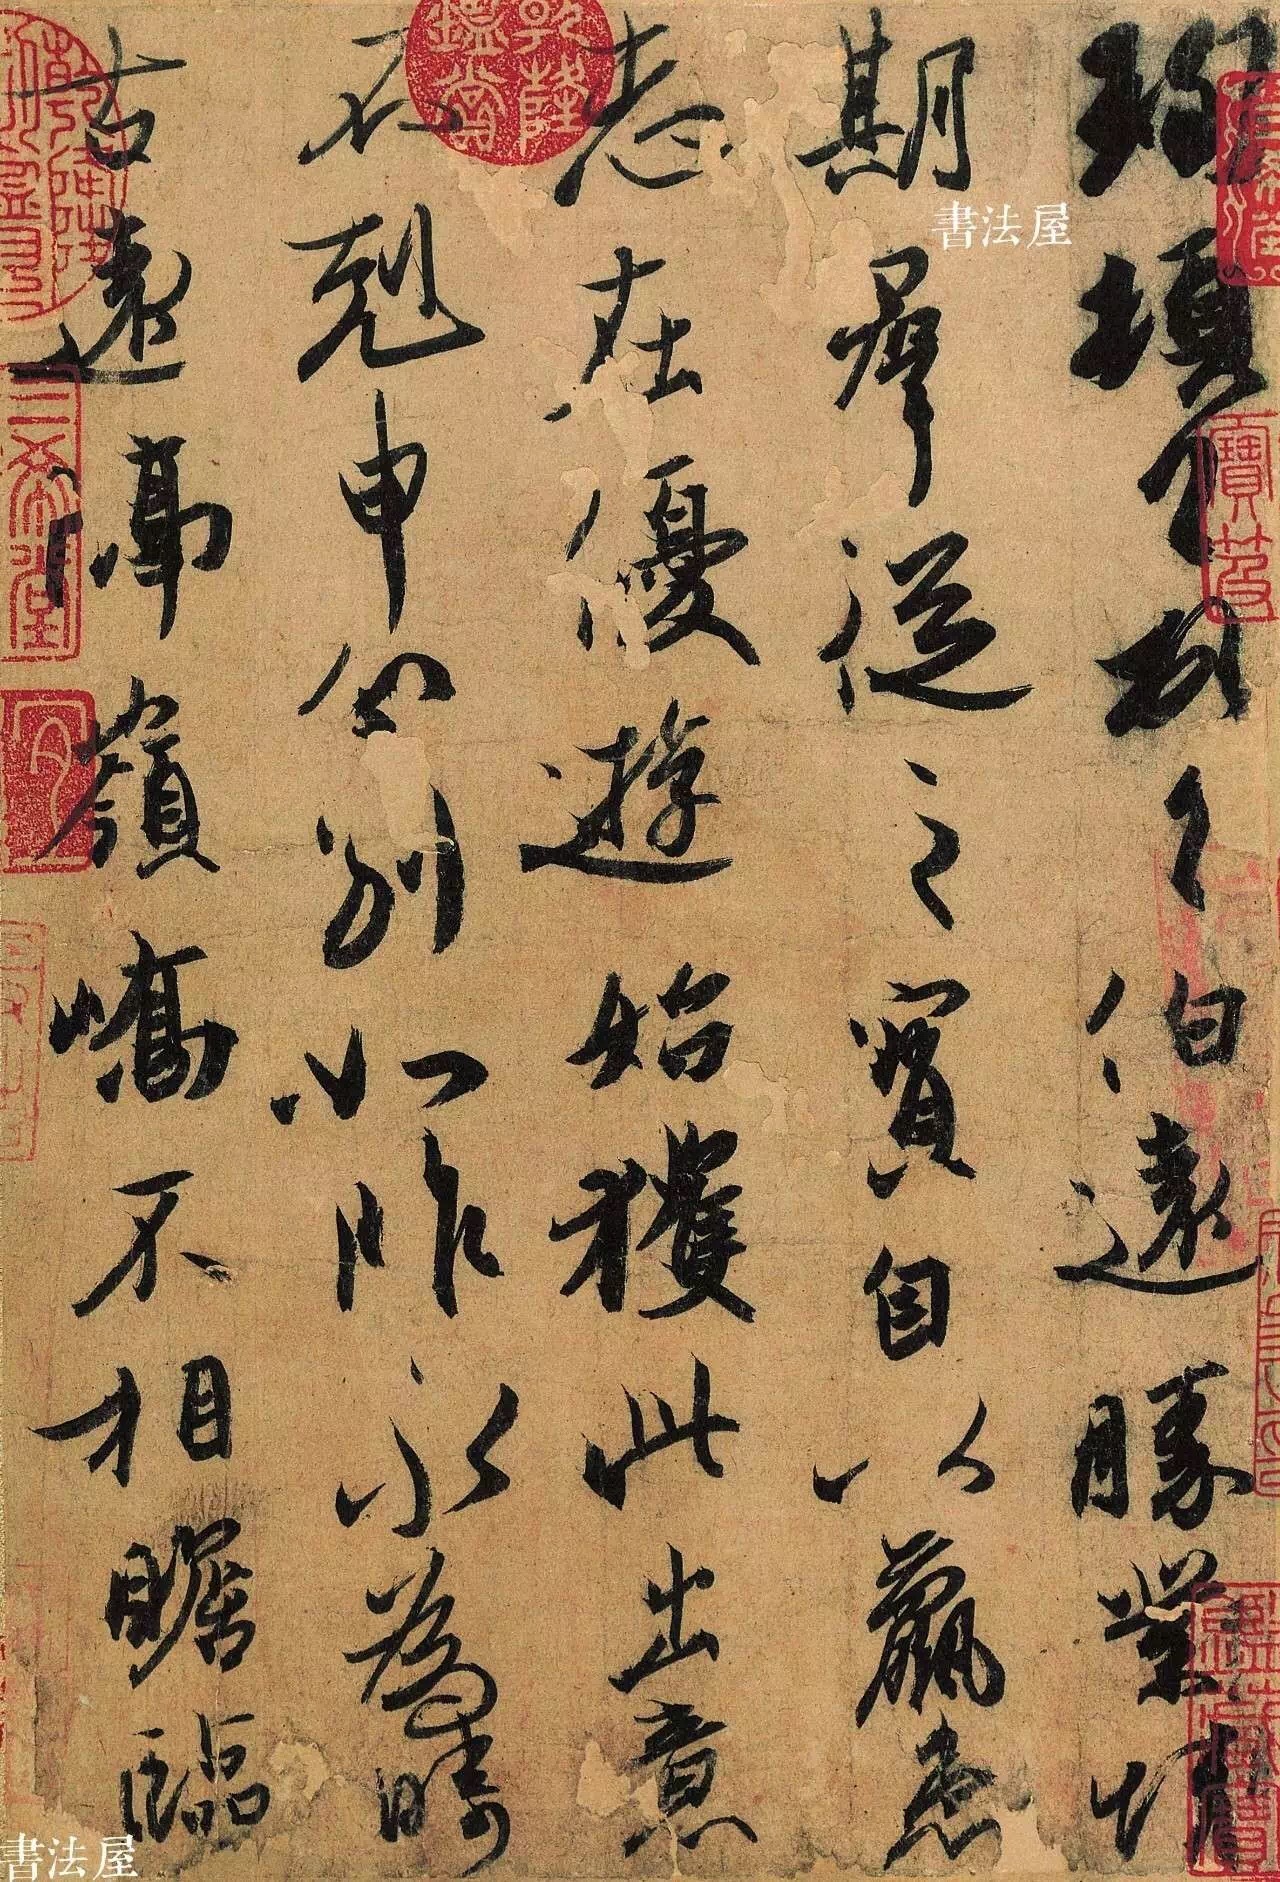 珣頓首頓首伯遠勝業情
期群從之寶自以羸患
志在優遊始獲此出意
不剋申分別如昨永為疇
古遠隔嶺嶠不相瞻臨
書法屋
書法屋
乾隆鑑賞
三希堂
寶笈